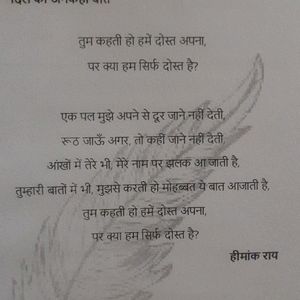 दिल की अनकही बात
तुम कहती हो हमें दोस्त अपना,
पर क्या हम सिर्फ दोस्त है?
एक पल मुझे अपने से दूर जाने नहीं देती,
रूठ जाऊँ अगर, तो कहीं जाने नहीं देती,
आंखों में तेरे भी, मेरे नाम पर झलक आ जाती है,
तुम्हारी बातों में भी, मुझसे करती हो मोहब्बत ये बात आजाती है,
तुम कहती हो हमें दोस्त अपना,
पर क्या हम सिर्फ दोस्त है?
हीमांक राय